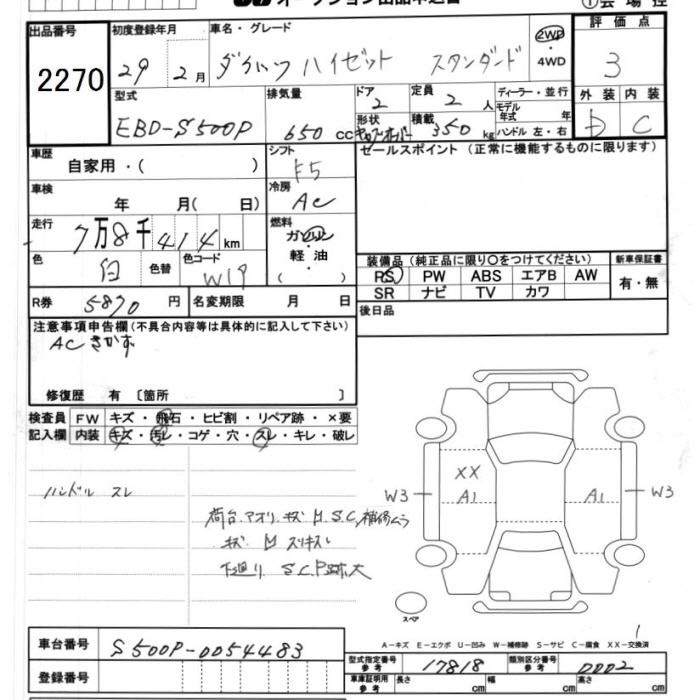 オークション出品申込書
出品番号 2270
初度登録年月 29 年 2 月
車名・グレード ダイハツ ハイゼット スタンダード
2WD ・ 4WD
評価点 3
型式 EBD-S500P
排気量 650 cc
ドア 2
形状
定員 2 人
積載 350 kg
ディーラー・並行
モデル年式 年
ハンドル 左・右
外装 D
内装 C
車歴 自家用・( )
シフト F5
セールスポイント (正常に機能するものに限ります)
車検 年 月( 日)
冷房 AC
走行 7万8千414 km
燃料 ガソリン・軽油 ( )
色 白 色替 色コード W19
装備品 (純正品に限り○をつけてください)
新車保証書 有・無
PS PW ABS エアB AW
SR ナビ TV カワ
R券 5870 円 名変期限 月 日
後日品
注意事項申告欄 (不具合内容等は具体的に記入して下さい)
AC きかず
修復歴 有 [箇所 ]
検査員記入欄
FW キズ・飛石・ヒビ割・リペア跡・×要
内装 キズ・汚レ・コゲ・穴・スレ・キレ・破レ
ハンドル スレ
荷台.アオリ.キズ H.S.C,補修ムラ
キズ H スリキズ
下廻り S.C.P跡大
XX
W3 A1 A1 W3
スペア
A−キズ E−エクボ U−凹み W−補修跡 S−サビ C−腐食 XX−交換済
車台番号 S500P-0054483
型式指定番号 参考 17818
類別区分番号 参考 0002
登録番号
車庫証明用 参考 長さ cm 幅 cm 高さ cm